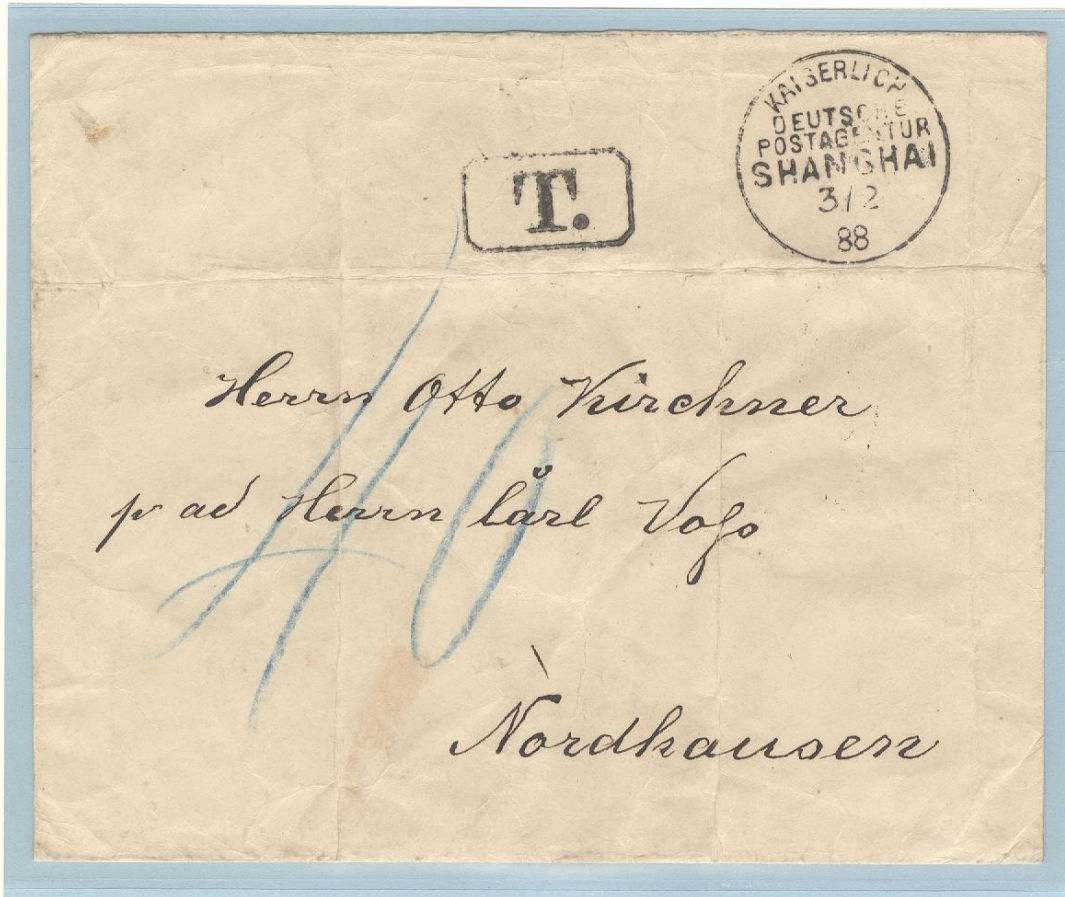 KAISERLICH
DEUTSCHE
POSTAGENTUR
SHANGHAI
3/2
88
T.
40
Herrn Otto Kirchner
pr ad Herrn Carl Voſs
Nordhausen